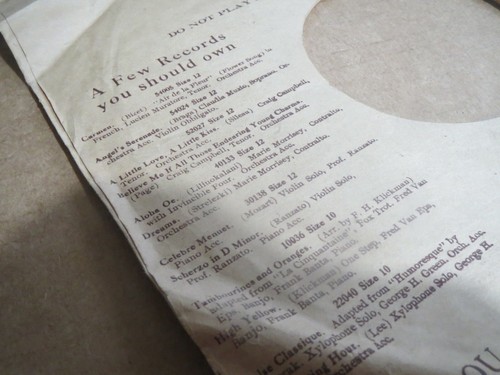 DO NOT PLAY
A Few Records
you should own
54005 Size 12
Carmen, (Bizet) "Air de la Fleur" (Flower Song) in
French, Lucien Muratore, Tenor. Orchestra Acc.
54024 Size 12
Angel's Serenade, (Braga) Claudia Muzio, Soprano. Or-
chestra Acc. Violin Obligato.
52027 Size 12
A Little Love, A Little Kiss, (Silesu) Craig Campbell,
Tenor. Orchestra Acc.
Believe Me If All Those Endearing Young Charms,
(Page) Craig Campbell, Tenor. Orchestra Acc.
40133 Size 12
Aloha Oe, (Liliuokalani) Marie Morrisey, Contralto,
with Invincible Four. Orchestra Acc.
Dreams, (Strelezki) Marie Morrisey, Contralto,
Orchestra Acc.
30138 Size 12
Celebre Menuet, (Mozart) Violin Solo, Prof. Ranzato.
Piano Acc.
Scherzo in D Minor, (Ranzato) Violin Solo,
Prof. Ranzato. Piano Acc.
10036 Size 10
Tambourines and Oranges, (Arr. by F. H. Klickmann)
adapted from "La Cinquantaine" Fox Trot. Fred Van
Eps, Banjo, Frank Banta, Piano.
High Yellow, (Klickmann) One Step, Fred Van Eps,
Banjo, Frank Banta, Piano.
22040 Size 10
Classique, Adapted from "Humoresque" by
Xylophone Solo, George H. Green, Orch. Acc.
Hour, (Lee) Xylophone Solo, George H.
Orchestra Acc.
OU